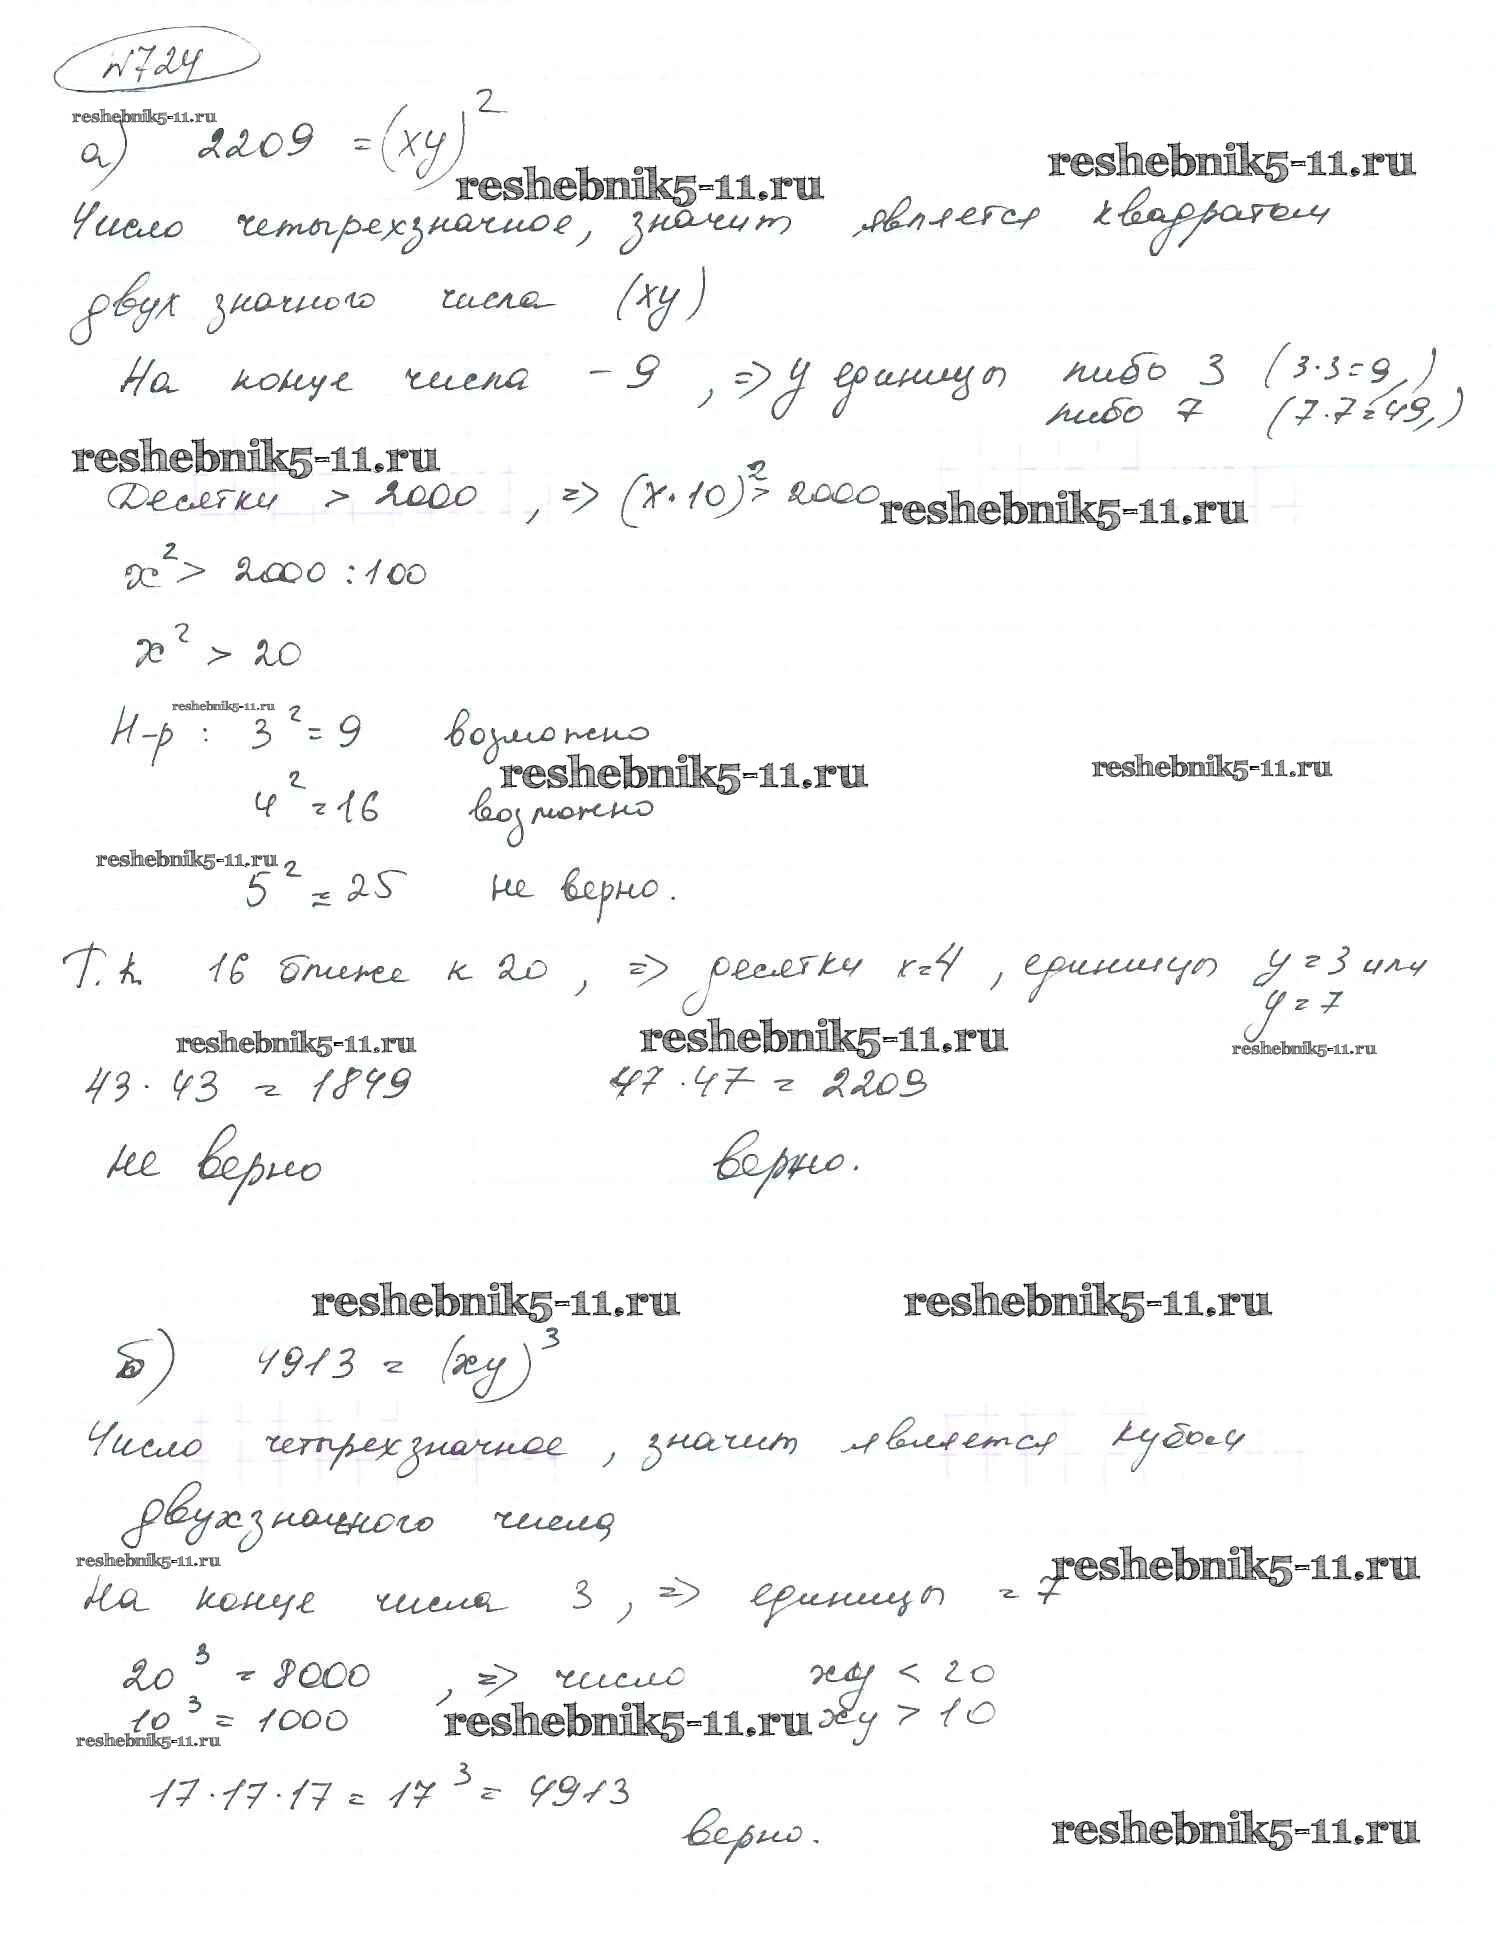 №724
reshebnik5-11.ru
а) 2209 = (xy)²
reshebnik5-11.ru
reshebnik5-11.ru
Число четырехзначное, значит является квадратом
двух значного числа (xy)
На конце числа – 9, => у единицы либо 3 (3·3=9,)
либо 7 (7·7=49,)
reshebnik5-11.ru
Десятки > 2000, => (x·10)² > 2000
reshebnik5-11.ru
x² > 2000 : 100
x² > 20
reshebnik5-11.ru
Н-р: 3² = 9 возможно
reshebnik5-11.ru
reshebnik5-11.ru
4² = 16 возможно
reshebnik5-11.ru
5² = 25 не верно.
Т.к. 16 ближе к 20, => десятки x=4, единицы y=3 или
y=7
reshebnik5-11.ru
reshebnik5-11.ru
reshebnik5-11.ru
43 · 43 = 1849 47 · 47 = 2209
не верно верно.
reshebnik5-11.ru
reshebnik5-11.ru
б) 4913 = (xy)³
Число четырехзначное, значит является кубом
двухзначного числа
reshebnik5-11.ru
reshebnik5-11.ru
На конце числа 3, => единицы = 7
20³ = 8000, => число xy < 20
10³ = 1000 xy > 10
reshebnik5-11.ru
reshebnik5-11.ru
17·17·17 = 17³ = 4913
верно.
reshebnik5-11.ru